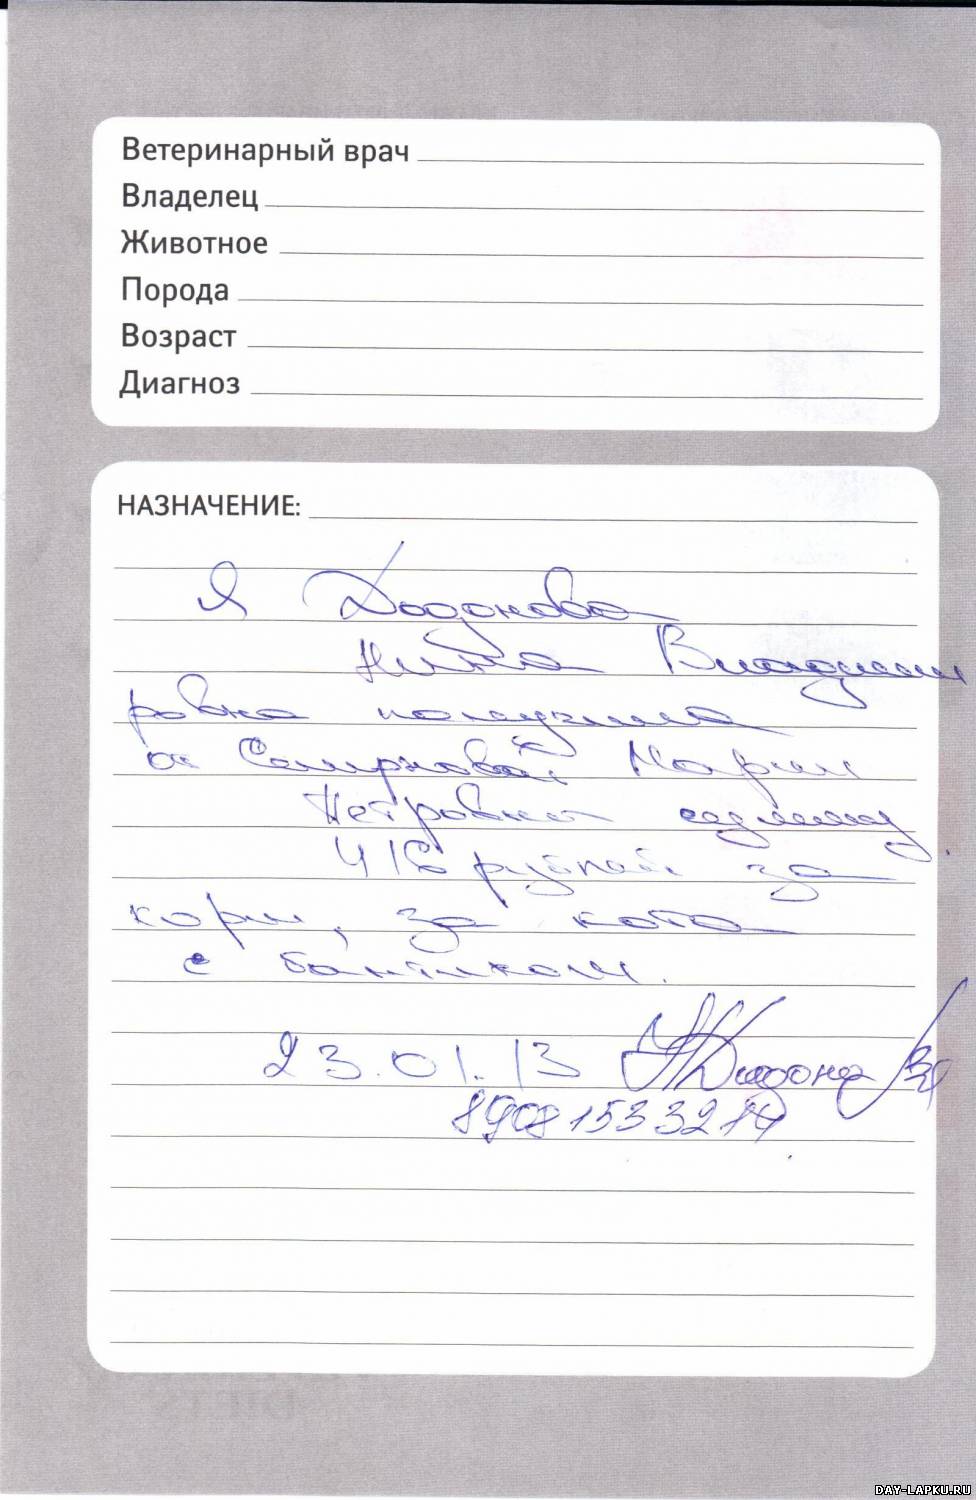 Ветеринарный врач
Владелец
Животное
Порода
Возраст
Диагноз
НАЗНАЧЕНИЕ:
Я Додонова
Нина Владими
ровна получила
от Смирновой Марии
Петровны сумму
416 рублей за
корм, за кота
с бантиком.
23.01.13
DAY-LAPKU.RU